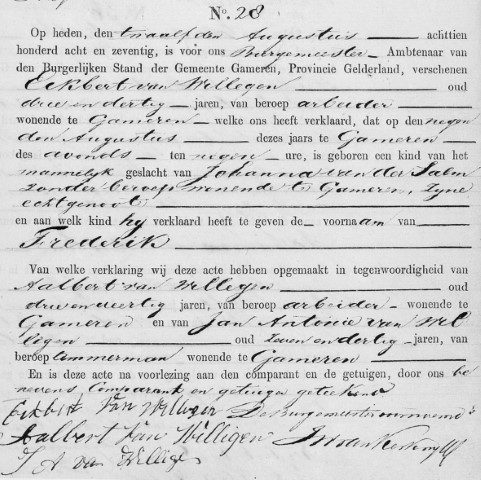 No. 28
Op heden, den twaalfden Augustus achttien
honderd acht en zeventig, is vóór ons Burgemeester Ambtenaar van
den Burgerlijken Stand der Gemeente Gameren, Provincie Gelderland, verschenen
Eckbert van Willigen oud
drie en dertig jaren, van beroep arbeider
wonende te Gameren welke ons heeft verklaard, dat op den negen
den Augustus dezes jaars te Gameren
des avonds ten negen ure, is geboren een kind van het
mannelijk geslacht van Johanna van der Salm
zonder beroep wonende te Gameren, zyne
echtgenoot
en aan welk kind hy verklaard heeft te geven de voornaam van
Frederik
Van welke verklaring wij deze acte hebben opgemaakt in tegenwoordigheid van
Aalbert van Willigen oud
drie en veertig jaren, van beroep arbeider wonende te
Gameren en van Jan Antonie van Wil
ligen oud zeven en dertig jaren, van
beroep timmerman wonende te Gameren
En is deze acte na voorlezing aan den comparant en de getuigen, door ons be
nevens Comparant en getuigen geteekend
Eckbert van Willigen De Burgemeester voornoemd
Aalbert Van Willigen
J A van Willige